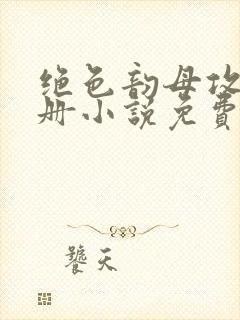 绝色韵母攻
册小说免费
饕天